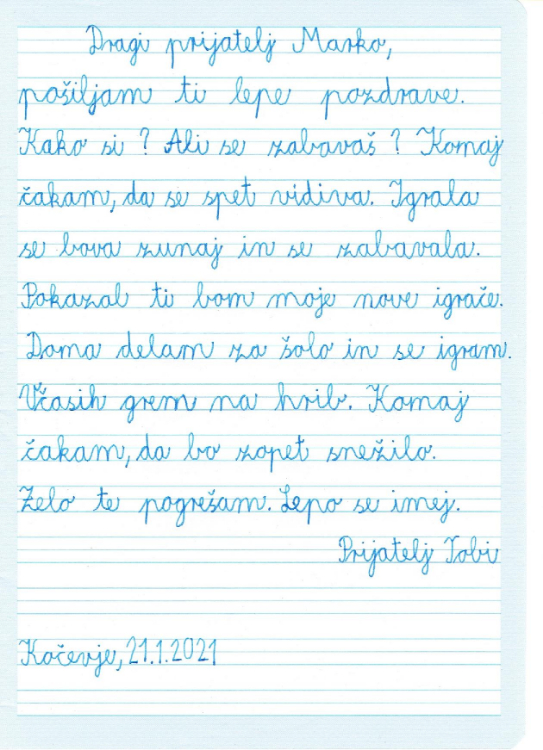 Dragi prijatelj Marko,
pošiljam ti lepe pozdrave.
Kako si? Ali se zabavaš? Komaj
čakam, da se spet vidiva. Igrala
se bova zunaj in se zabavala.
Pokazal ti bom moje nove igrače.
Doma delam za šolo in se igram.
Včasih grem na hrib. Komaj
čakam, da bo zopet snežilo.
Zelo te pogrešam. Lepo se imej.
Prijatelj Tobi
Kočevje, 21.1.2021